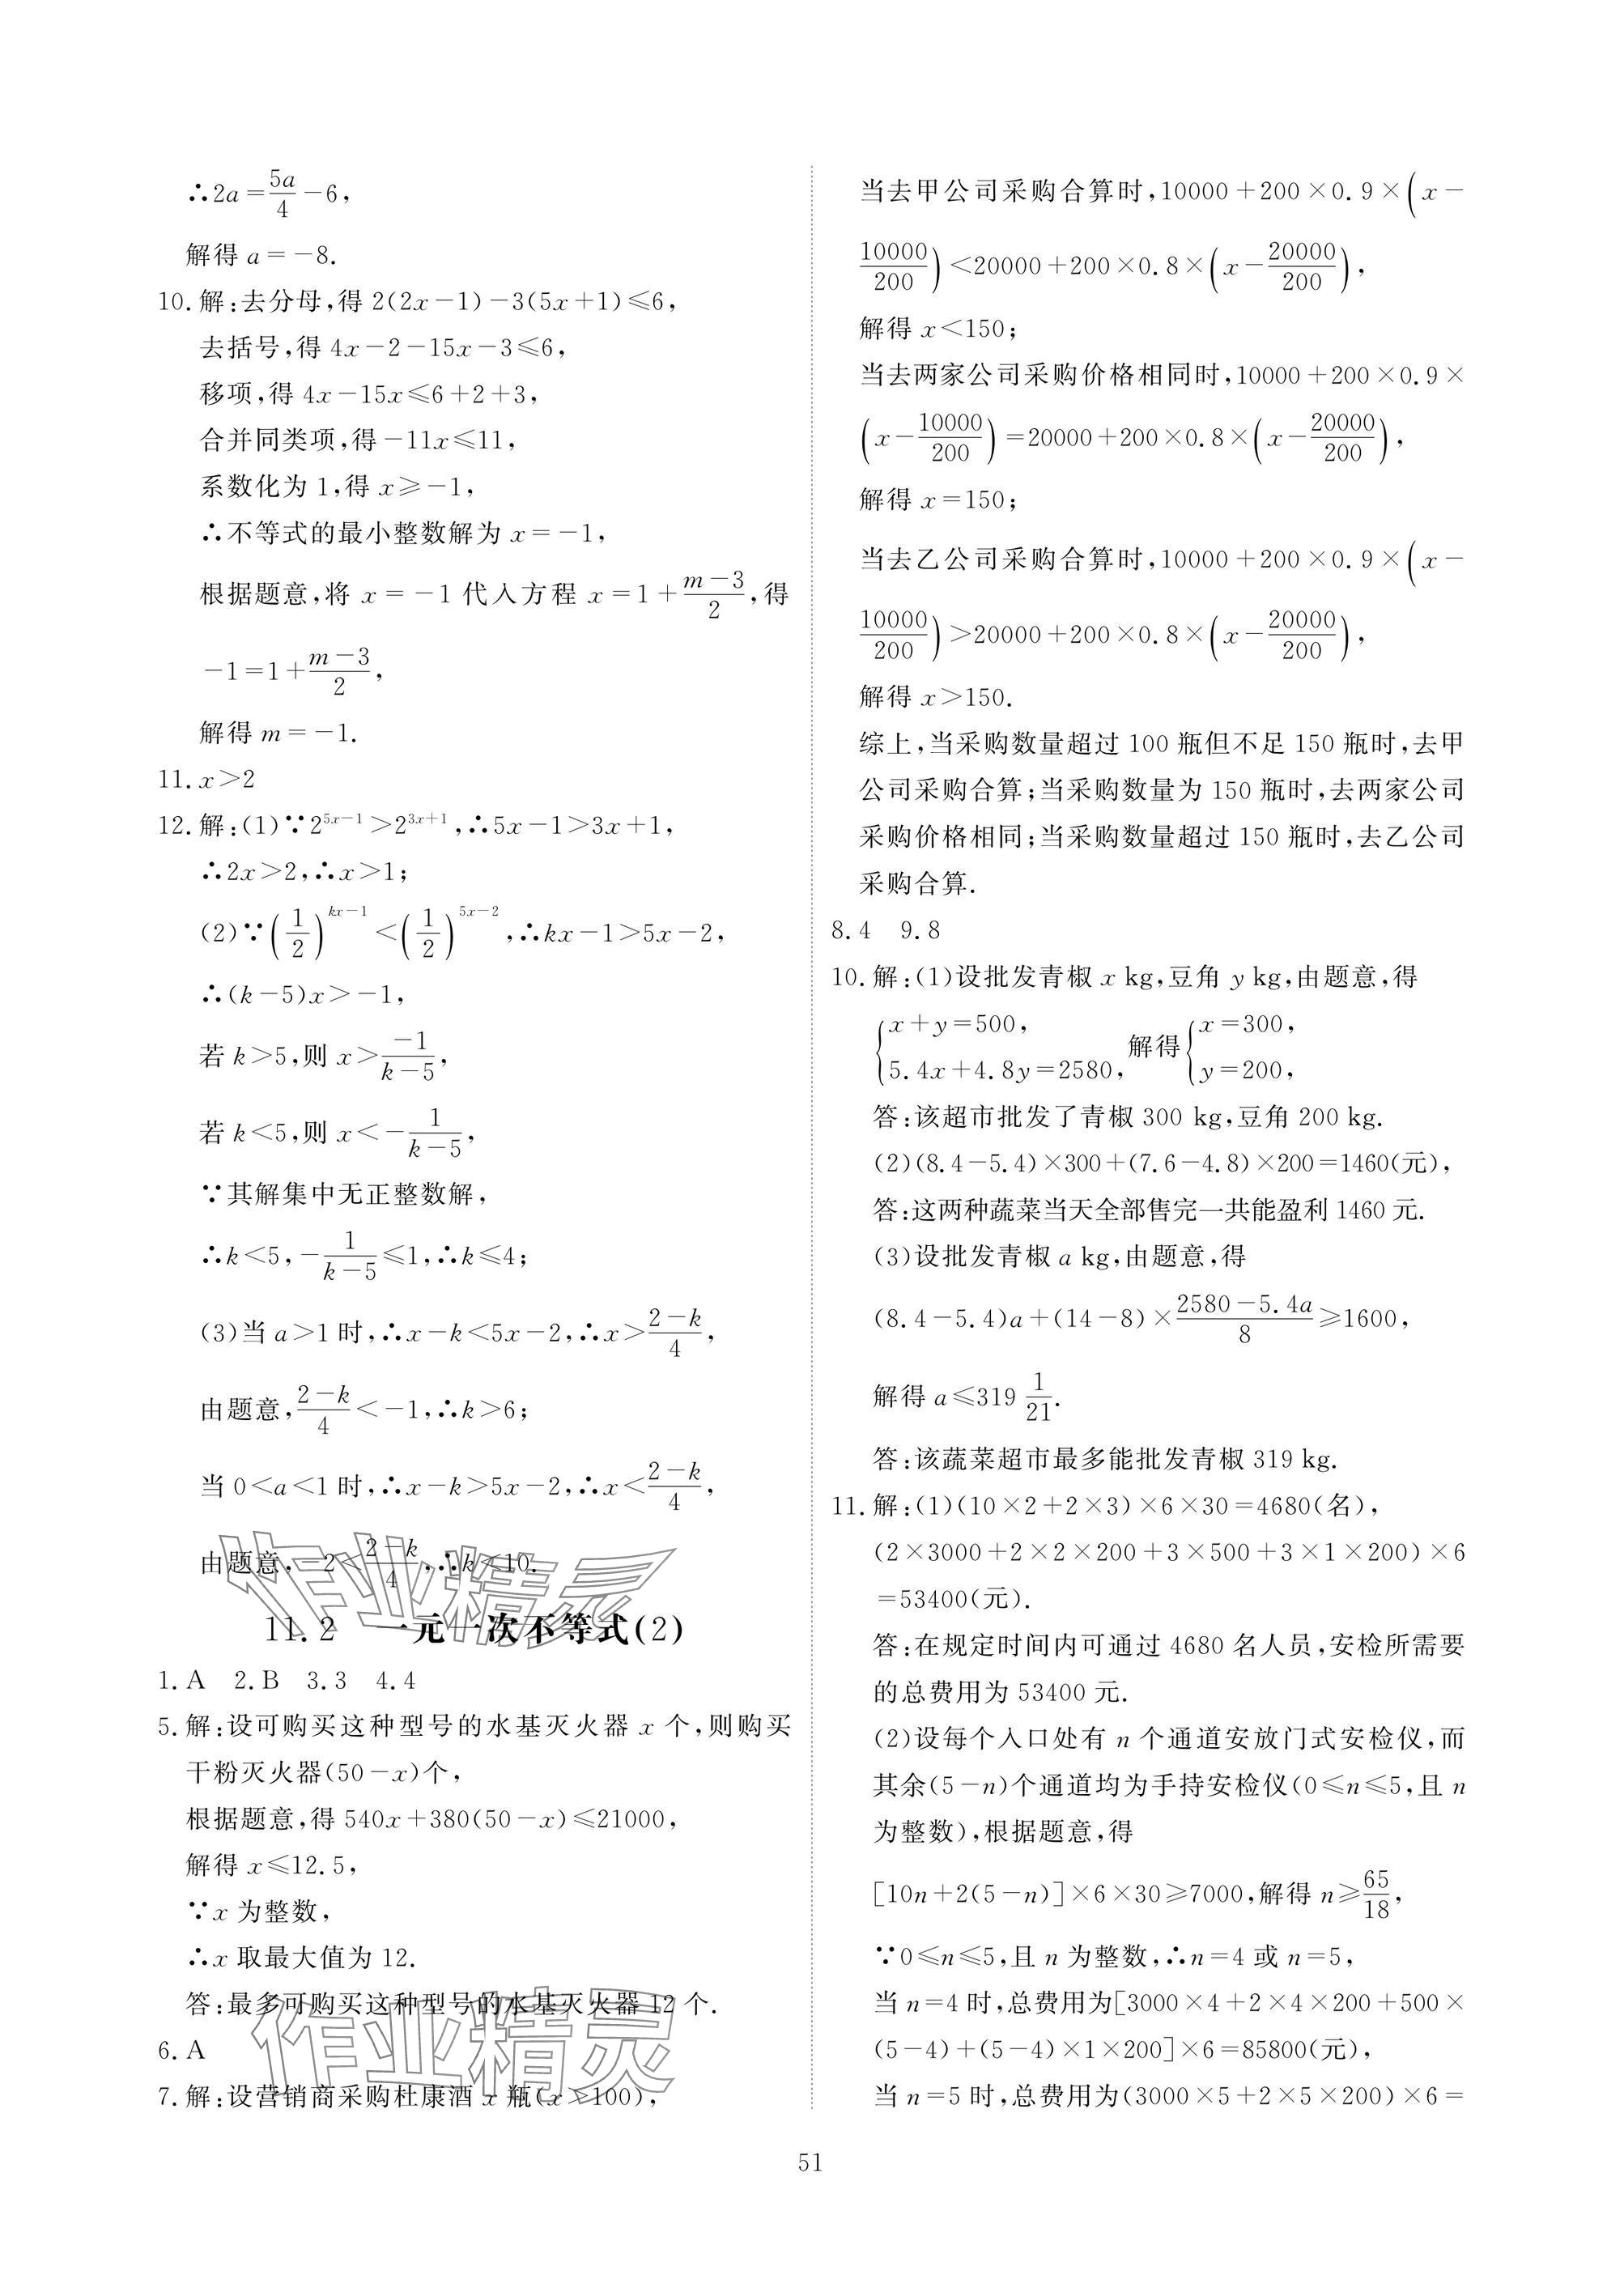 ∴2a=5a/4-6,
解得 a=-8.
10.解:去分母,得 2(2x-1)-3(5x+1)≤6,
去括号,得 4x-2-15x-3≤6,
移项,得 4x-15x≤6+2+3,
合并同类项,得-11x≤11,
系数化为 1,得 x≥-1,
∴不等式的最小整数解为 x=-1,
根据题意,将 x=-1 代入方程 x=1+(m-3)/2,得
-1=1+(m-3)/2,
解得 m=-1.
11.x>2
12.解:(1)∵2^(5x-1)>2^(3x+1),∴5x-1>3x+1,
∴2x>2,∴x>1;
(2)∵(1/2)^(kx-1)<(1/2)^(5x-2),∴kx-1>5x-2,
∴(k-5)x>-1,
若 k>5,则 x>-1/(k-5),
若 k<5,则 x<-1/(k-5),
∵其解集中无正整数解,
∴k<5,-1/(k-5)≤1,∴k≤4;
(3)当 a>1 时,∴x-k<5x-2,∴x>(2-k)/4,
由题意,(2-k)/4<-1,∴k>6;
当 0<a<1 时,∴x-k>5x-2,∴x<(2-k)/4,
由题意,-2<(2-k)/4,∴k<10.
11.2 一元一次不等式(2)
1.A 2.B 3.3 4.4
5.解:设可购买这种型号的水基灭火器 x 个,则购买
干粉灭火器(50-x)个,
根据题意,得 540x+380(50-x)≤21000,
解得 x≤12.5,
∵x 为整数,
∴x 取最大值为 12.
答:最多可购买这种型号的水基灭火器 12 个.
6.A
7.解:设营销商采购杜康酒 x 瓶(x>100),
当去甲公司采购合算时,10000+200×0.9×(x-
10000/200)<20000+200×0.8×(x-20000/200),
解得 x<150;
当去两家公司采购价格相同时,10000+200×0.9×
(x-10000/200)=20000+200×0.8×(x-20000/200),
解得 x=150;
当去乙公司采购合算时,10000+200×0.9×(x-
10000/200)>20000+200×0.8×(x-20000/200),
解得 x>150.
综上,当采购数量超过 100 瓶但不足 150 瓶时,去甲
公司采购合算;当采购数量为 150 瓶时,去两家公司
采购价格相同;当采购数量超过 150 瓶时,去乙公司
采购合算.
8.4 9.8
10.解:(1)设批发青椒 x kg,豆角 y kg,由题意,得
{x+y=500, 5.4x+4.8y=2580, 解得{x=300, y=200,
答:该超市批发了青椒 300 kg,豆角 200 kg.
(2)(8.4-5.4)×300+(7.6-4.8)×200=1460(元),
答:这两种蔬菜当天全部售完一共能盈利 1460 元.
(3)设批发青椒 a kg,由题意,得
(8.4-5.4)a+(14-8)×(2580-5.4a)/8≥1600,
解得 a≤319 1/21.
答:该蔬菜超市最多能批发青椒 319 kg.
11.解:(1)(10×2+2×3)×6×30=4680(名),
(2×3000+2×2×200+3×500+3×1×200)×6
=53400(元).
答:在规定时间内可通过 4680 名人员,安检所需要
的总费用为 53400 元.
(2)设每个入口处有 n 个通道安放门式安检仪,而
其余(5-n)个通道均为手持安检仪(0≤n≤5,且 n
为整数),根据题意,得
[10n+2(5-n)]×6×30≥7000,解得 n≥65/18,
∵0≤n≤5,且 n 为整数,∴n=4 或 n=5,
当 n=4 时,总费用为[3000×4+2×4×200+500×
(5-4)+(5-4)×1×200]×6=85800(元),
当 n=5 时,总费用为(3000×5+2×5×200)×6=
51
作业精灵
作业精灵